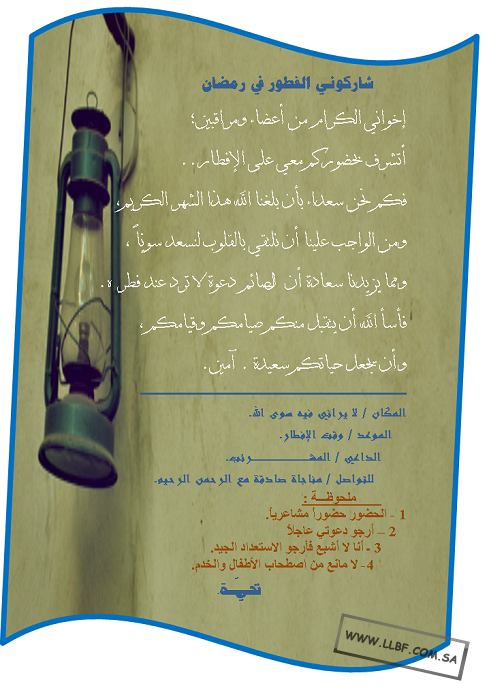 شاركوني الفطور في رمضان
إخواني الكرام من أعضاء ومراقبين؛
أتشرف بحضوركم معي على الإفطار..
فكم نحن سعداء بأن بلغنا الله هذا الشهر الكريم،
ومن الواجب علينا أن نلتقي بالقلوب لنسعد سوياً،
ومما يزيدنا سعادة أن للصائم دعوة لا ترد عند فطره.
فأسأ الله أن يتقبل منكم صيامكم وقيامكم،
وأن يجعل حياتكم سعيدة . آمين.
المكان / لا يراني فيه سوى الله.
الموعد / وقت الإفطار.
الداعي / المشـــــــــرني.
للتواصل / مناجاة صادقة مع الرحمن الرحيم.
ملحوظـــة :
1 - الحضور حضوراً مشاعرياً.
2 – أرجو دعوتي عاجلاً
3 - أنا لا أشبع فأرجو الاستعداد الجيد.
4- لا مانع من اصطحاب الأطفال والخدم.
تحيـــّة.
WWW.LLBF.COM.SA